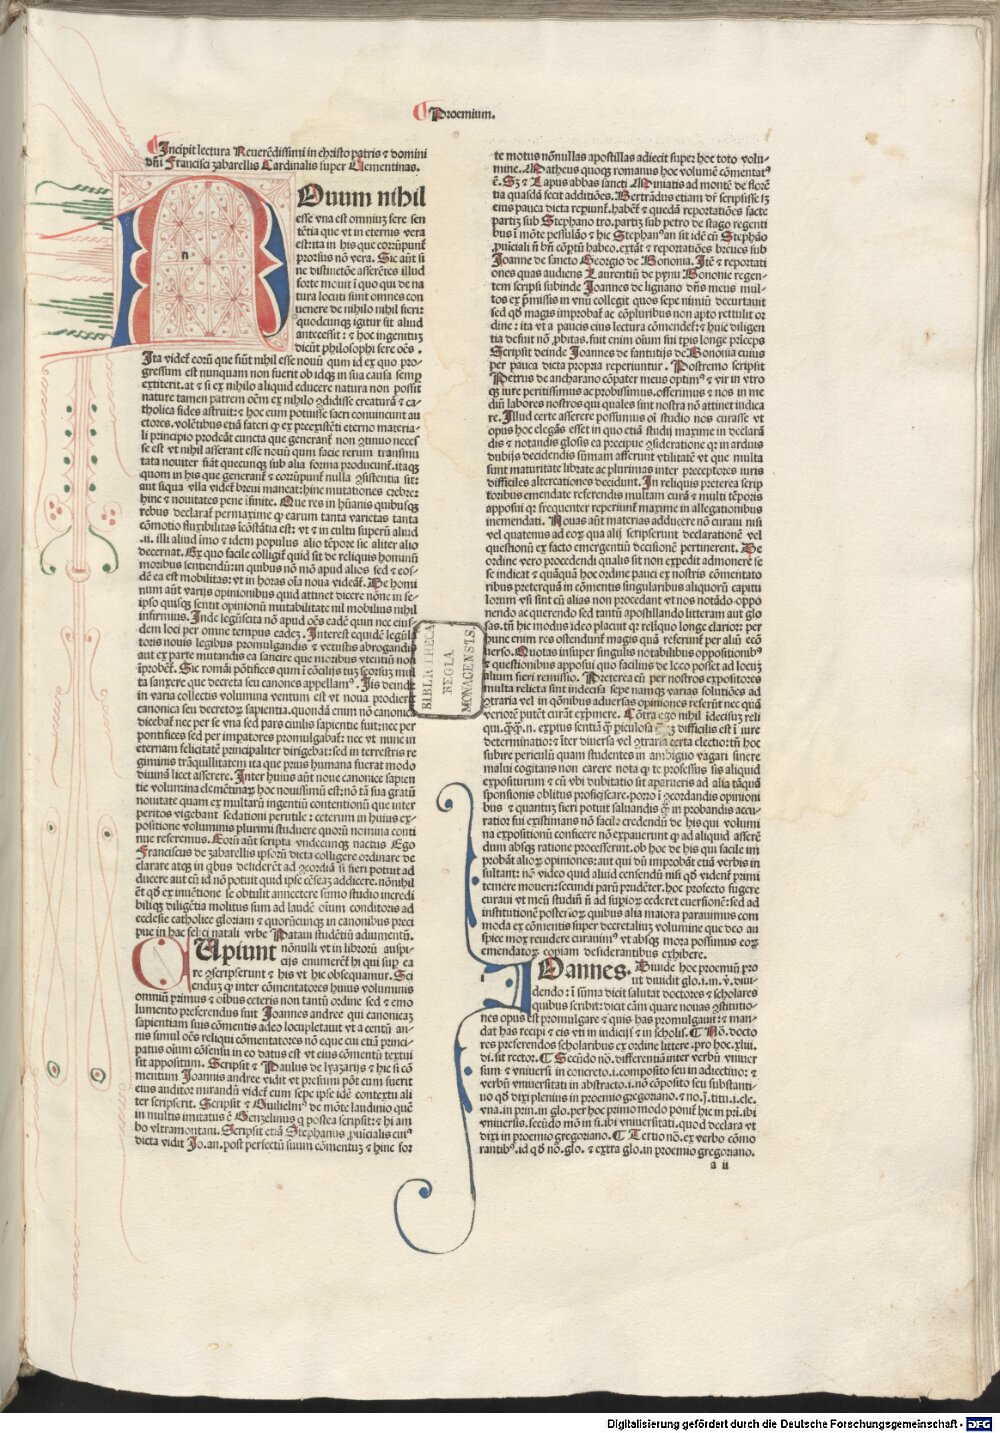 Proemium.
Incipit lectura Reuerẽdissimi in christo patris ⁊ domini
dñi Francisci zabarellis Cardinalis super Clementinas.
Ouum nihil
esse vna est omnium fere sen
tẽtia que vt in eternis vera
est: ita in his que corrũpunt̃
prorsus nõ vera. Sic aũt si
ne distinctõe asserẽtes illud
forte mouit ĩ quo qui de na
tura locuti sunt omnes con
uenere de nihilo nihil fieri:
quodcunqꝫ igitur fit aliud
antecessit: ⁊ hoc ingenitum
dicũt philosophi fere oẽs.
Ita videt̃ eorũ que fiũt nihil esse nouũ qum id ex quo pro
gressum est nunquam non fuerit ob idqꝫ in sua causa semꝑ
extiterit. at ⁊ si ex nihilo aliquid educere natura non possit
nature tamen patrem oẽm ex nihilo ꝯdidisse creaturã ⁊ ca-
tholica fides astruit: ⁊ hoc eum potuisse facri conuincunt au
ctores. volẽtibus etiã fateri ꝙ ex preexistẽti eterno materia-
li principio prodeãt cuncta que generant̃ non ꝯtinuo neces
se est vt nihil asserant esse nouũ qum facie rerum transmu
tata nouiter fiãt quecunqꝫ sub alia forma producunt̃. itaqꝫ
quom in his que generant̃ ⁊ corrũpunt̃ nulla ꝯsistentia sit:
aut siqua vlla videt̃ breui maneat: hinc mutationes crebre:
hinc ⁊ nouitates pene ĩfinite. Que res in hũanis quibusqꝫ
rebus declarat̃ permaxime ꝙ earum tanta varietas tanta
cõmotio fluxibilitas ĩcõstãtia est: vt ⁊ in cultu superũ aliud
.n. illi aliud imo ⁊ idem populus alio tẽpore sic aliter alio
decernat. Ex quo facile colligit̃ quid sit de reliquis hominũ
moribus sentiendũ: in quibus nõ mõ apud alios sed ⁊ eos-
dẽ ea est mobilitas: vt in horas oĩa noua videãt̃. De homi
num aũt varijs opinionibus quid attinet dicere nõne in se-
ipso quisqꝫ sentit opinionũ mutabilitate nil mobilius nihil
infirmius. Inde legũscita nõ apud oẽs eadẽ quin nec eius
dem loci per omne tempus eadeꝫ. Interest equidẽ legũla
toris nouis legibus promulgandis ⁊ vetustis abrogandis
aut ex parte mutandis ea sancire que moribus vtentiũ non
ĩprobẽt̃. Sic romãi põtifices qum ĩ cõcilijs tuꝫ seorsuꝫ mul
ta sanxere que decreta seu canones appellam⁹. His deinde
in varia collectis volumina ventum est vt noua prodieri
canonica seu decretoꝝ sapientia. quondã enim nõ canonica
dicebat̃ nec per se vna sed pars ciuilis sapientie fuit: nec per
pontifices sed per impatores promulgabat̃: nec vt nunc in
eternam felicitatẽ principaliter dirigebat̃: sed in terrestris re
giminis trãquillitatem ita que prius humana fuerat modo
diuinã licet asserere. Inter huius aũt noue canonice sapien
tie volumina clemẽtinaꝝ hoc nouissimũ est: nõ tã sua gratũ
nouitate quam ex multarũ ingentiũ contentionũ que inter
peritos vigebant sedationi perutile: ceterum in huius ex-
positione voluminis plurimi studuere quorũ nomina conti
nue referemus. Eorũ aũt scripta vndecunqꝫ nactus Ego
Franciscus de zabarellis ipsorũ dicta colligere ordinare de
clarare atqꝫ in ꝗbus desiderẽt̃ ad ꝯcordiã si fieri potuit ad
ducere aut cũ id nõ potuit quid ipse cẽseaꝫ addicere. nõnihil
ẽt ꝙd ex inuẽtione se obtulit annectere sũmo studio incredi
biliqꝫ diligẽtia molitus sum ad laudẽ oĩum conditoris ad
ecclesie catholice gloriam ⁊ quorũcunqꝫ in canonibus preci
pue in hac felici natali vrbe Pataui studẽtiũ adiumentũ.
Upiunt nõnulli vt in librorũ auspi-
cijs enumerẽt̃ hi qui sup ea
re ꝯscripserunt ⁊ his vt hic obsequamur. Sci
endum ꝙ inter cõmentatores huius voluminis
omniũ primus ⁊ oĩbus ceteris non tantũ ordine sed ⁊ emo
lumento preferendus fuit Ioannes andree qui canonicaꝫ
sapientiam suis cõmentis adeo locupletauit vt a centũ an-
nis simul oẽs reliqui cõmentatores nõ eque cui etiã princi-
patus oĩum cõsensu in eo datus est vt eius cõmentũ textui
sit appositum. Scripsit ⁊ Paulus de lyazarijs ⁊ hic si cõ
mentum Ioannis andree vidit vt presumi põt cum fuerit
eius auditor mirandũ videt̃ cum sepe ipse idẽ contexti ali
ter scripserit. Scripsit ⁊ Guilielm⁹ de mõte laudinio quẽ
in multis imitatus ẽ Genzelinus ꝗ postea scripsit: ⁊ hi am
bo vltramontani. Scripsit etiã Stephanus ꝓuicialis cui⁹
dicta vidit Jo. an. post perfectũ suum cõmentuꝫ ⁊ hinc for
te motus nõnullas apostillas adiecit super hoc toto volu-
mine. Matheus quoqꝫ romanus hoc volumẽ cõmentat⁹
ẽ. Sꝫ ⁊ Lapus abbas sancti Miniatis ad montẽ de florẽ
tia quasdã fecit additiões. Bertrãdus etiam dr̃ scripsisse sꝫ
eius pauca dicta repiunt̃. habẽt̃ ⁊ quedã reportatiões facte
partiꝫ sub Stephano tro. partiꝫ sub petro de stago regenti
bus ĩ mõte pessulão ⁊ hic Stephan⁹ an sit idẽ cũ Stephão
ꝓuiciali ñ bñ cõptũ habeo. extãt ⁊ reportatiões breues sub
Joanne de sancto Georgio de Bononia. Itẽ ⁊ reportati
ones quas audiens Laurentiũ de pynu Bononie regen-
tem scripsi subinde Joannes de lignano dñs meus mul-
tos ex p̃missis in vnũ collegit quos sepe nimiũ decurtauit
sed ꝙd magis improbat̃ ac cõpluribus non apto rettulit or
dine: ita vt a paucis eius lectura cõmendet̃: ⁊ huic diligen
tia defuit nõ ꝓbitas. fuit enim oĩum sui tp̃is longe prĩceps
Scripsit deinde Joannes de fantutijs de Bononia cuius
per pauca dicta propria reperiuntur. Postremo scripsit
Petrus de ancharano cõpater meus optim⁹ ⁊ vir in vtro
qꝫ iure peritissimus ac probissimus. offerimus ⁊ nos in me
diũ labores nostros qui quales sint nostra nõ attinet iudica
re. Illud certe asserere possumus oĩ studio nos curasse vt
opus hoc elegãs esset in quo etiã studij maxime in declarã
dis ⁊ notandis glosis ea precipue ꝯsideratione qꝛ in arduis
dubijs decidendis sũmam afferunt vtilitatẽ vt que multa
sunt maturitate librate ac plurimas inter preceptores iuris
difficiles altercationes decidunt. In reliquis preterea scrip
toribus emendate referendis multam curã ⁊ multi tẽporis
apposui qꝛ frequenter reperiunt̃ maxime in allegationibus
inemendati. Nouas aũt materias adducere nõ curaui nisi
vel quatenus ad eoꝝ qua alij scripserunt declarationẽ vel
questionũ ex facto emergentiũ decisionẽ pertinerent. De
ordine vero procedendi qualis sit non expedit admonere se
se indicat ⁊ quãquã hoc ordine pauci ex nostris cõmentato
ribus preterquã in cõmentis singularibus aliquorũ capitu
lorum vsi sint cũ alias non procedant vt nos notãdo oppo
nendo ac querendo sed tantũ apostillando litteram aut glo
sas. tñ hic modus ideo placuit qꝛ reliquo longe clarior: per
hunc enim res ostendunt̃ magis quã referunt̃ per aliũ ecõ
uerso. Quotas insuper singulis notabilibus oppositionib⁹
⁊ questionibus apposui quo facilius de loco posset ad locuꝫ
alium fieri remissio. Preterea cũ per nostros expositores
multa relicta sint indecisa sepe namqꝫ varias solutiões ad
ꝯtraria vel in q̃onibus aduersas opiniones referũt nec quã
veriorẽ putẽt curãt exp̃mere. Cõtra ego nihil ĩdecisuꝫ reli
qui. quꝙꝫ. n. exptus sentiã ꝙ piculosa ꝙꝫ difficilis est ĩ iure
determinatio: ⁊ ĩter diuersa vel ꝯtraria certa electio: tñ hoc
subire periculũ quam studentes in ambiguo vagari sinere
malui cogitans non carere nota ꝙ te professus sis aliquid
expositurum ⁊ cũ vbi dubitatio sit apparueris ad alia tãquã
sponsionis oblitus proficiscare. porro ĩ ꝯcordandis opinioni
bus ⁊ quantuꝫ fieri potuit saluandis ꝙ̃ in probandis accu-
ratior fui existimans nõ facile credendũ de his qui volumi
na expositionũ conficere nõ expauerunt ꝙ ad aliquid asserẽ
dum absqꝫ ratione processerint. ob hoc de his qui facile im
probãt alioꝝ opiniones: aut qui dũ improbãt etiã verbis in
sultant: nõ video quid aliud censendũ nisi ꝙd vident̃ primi
temere moueri: secundi parũ prudẽter. hoc profecto fugere
curaui vt meũ studiũ ñ ad supioꝝ cederet euersionẽ: sed ad
institutionẽ posterioꝝ quibus alia maiora parauimus com
moda ex cõmentis super decretaliuꝫ volumine que deo au
spice mox reddere curauim⁹ vt absqꝫ mora possimus eoꝝ
emendatoꝝ copiam desiderantibus exhibere.
Oannes. Diuide hoc proemiũ pro
ut diuidit glo. i. in. ꝟ. diui-
dendo: ĩ sũma dicit salutat doctores ⁊ scholares
quibus scribit: dicit cãm quare nouas ꝯstitutio-
nes opus est promulgare ⁊ quis has promulgauit: ⁊ man-
dat has recipi ⁊ eis vti in iudicijs ⁊ in scholis. ¶ Nõ. docto
res preferendos scholaribus ex ordine littere. pro hoc. xlij.
di. sit rector. ¶ Secũdo nõ. differentiã inter verbũ vniuer
sum ⁊ vniuersi in concreto. i. composito seu in adiectiuo: ⁊
verbũ vniuersitati in abstracto. i. nõ cõposito seu substanti-
uo ꝙd dixi plenius in proemio gregoriano. ⁊ no. j. titu. i. cle.
vna. in prin. in glo. per hoc primo modo ponit̃ hic in pri. ibi
vniuersis. secũdo mõ in fi. ibi vniuersitati. quod declara vt
dixi in proemio gregoriano. ¶ Tertio nõ. ex verbo cõmo
rantib⁹. id ꝙd nõ. glo. ⁊ extra glo. in proemio gregoriano.
a ii
BIBLIOTHECA
REGIA
MONACENSIS.
Digitalisierung gefördert durch die Deutsche Forschungsgemeinschaft - DFG